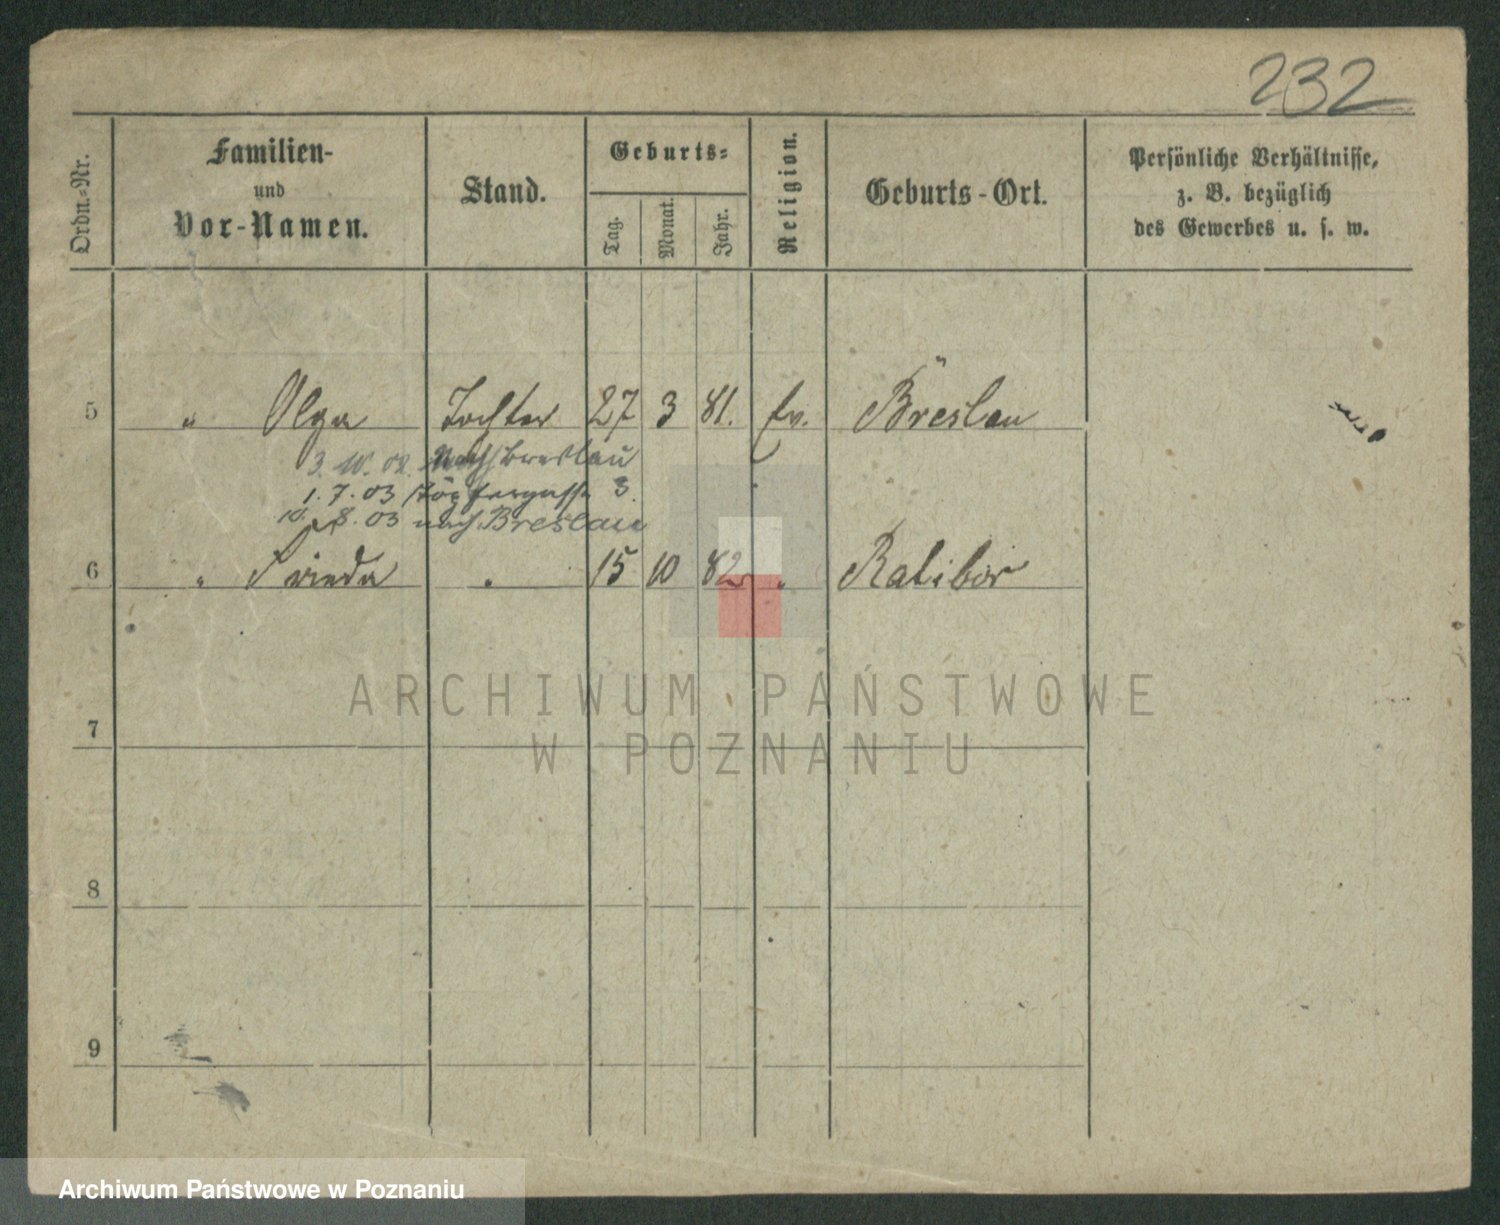 232
Ordn.-Nr.
Familien-
und
Vor-Namen.
Stand.
Geburts-
Tag.
Monat.
Jahr.
Religion.
Geburts-Ort.
Persönliche Verhältnisse,
z. B. bezüglich
des Gewerbes u. s. w.
5 " Olga Tochter 27 3 81. Ev. Breslau
3. 10. 02. Nach Breslau
1. 7. 03 Töpfergasse 3.
10. 8. 03 nach Breslau
6 " Frieda " 15 10 82 " Ratibor
ARCHIWUM PAŃSTWOWE
W POZNANIU
7
8
9
Archiwum Państwowe w Poznaniu